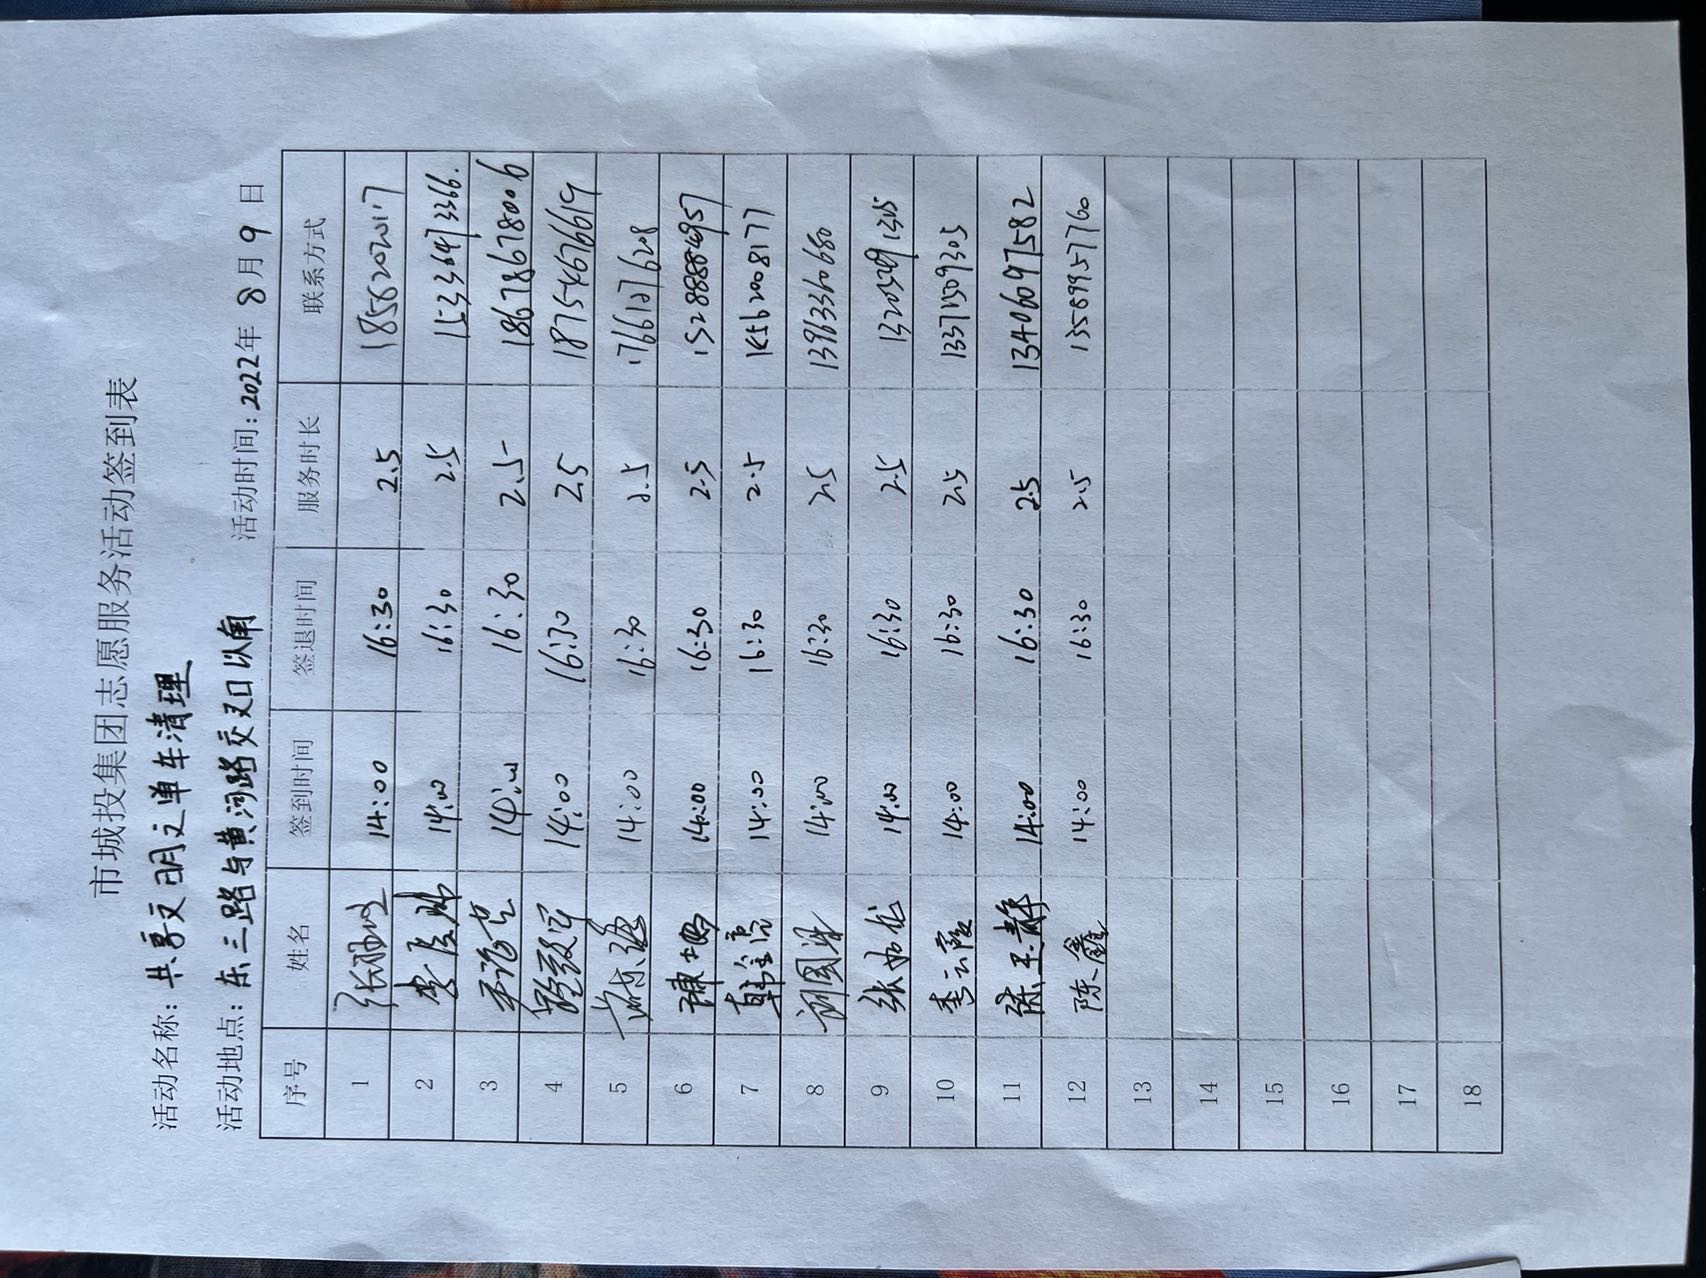 市城投集团志愿服务活动签到表
活动名称：共享文明之单车清理
活动地点：东三路与黄河路交叉口以南 活动时间：2022年8月9日
序号 姓名 签到时间 签退时间 服务时长 联系方式
1 14:00 16:30 2.5 18562020117
2 14:00 16:30 2.5 15336473366.
3 14:00 16:30 2.5 18678678006
4 14:00 16:30 2.5 18754676619
5 14:00 16:30 2.5 17661276208
6 陈坤 14:00 16:30 2.5
7 韩金亮 14:00 16:30 2.5
8 14:00 16:30 2.5 13963360680
9 14:00 16:30 2.5
10 李云霞 14:00 16:30 2.5 13371509305
11 陈玉静 14:00 16:30 2.5 13406097582
12 陈鑫 14:00 16:30 2.5 13589957760
13
14
15
16
17
18